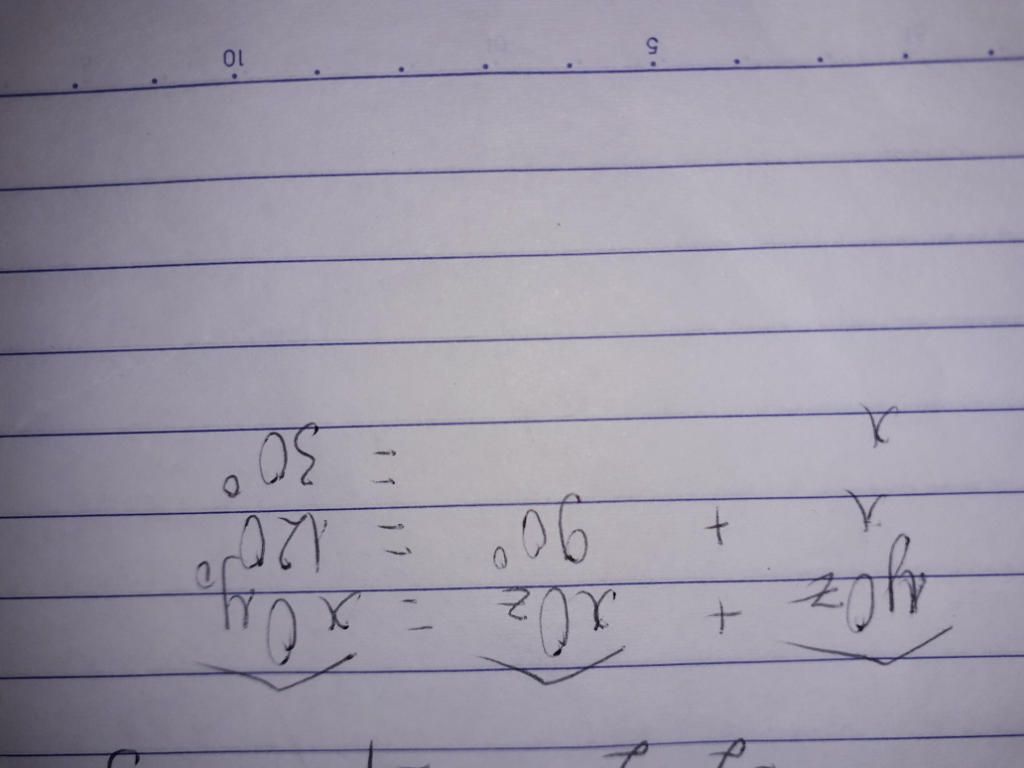 yOz + xOz = xOy
x + 90° = 120°
x = 30°
5 10